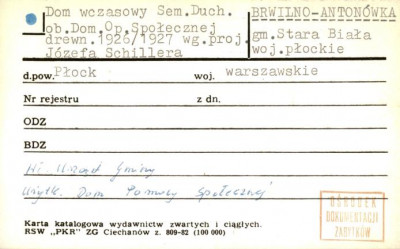 Dom wczasowy Sem.Duch.
ob.Dom.Op.Społecznej
drewn.1926/1927 wg.proj.
Józefa Schillera
BRWILNO-ANTONÓWKA
gm.Stara Biała
woj.płockie
d.pow. Płock woj. warszawskie
Nr rejestru z dn.
ODZ
BDZ
Wł. Urząd Gminy
Użytk. Dom Pomocy Społecznej
OŚRODEK
DOKUMENTACJI
ZABYTKÓW
Karta katalogowa wydawnictw zwartych i ciągłych.
RSW „PKR” ZG Ciechanów z. 809-82 (100 000)